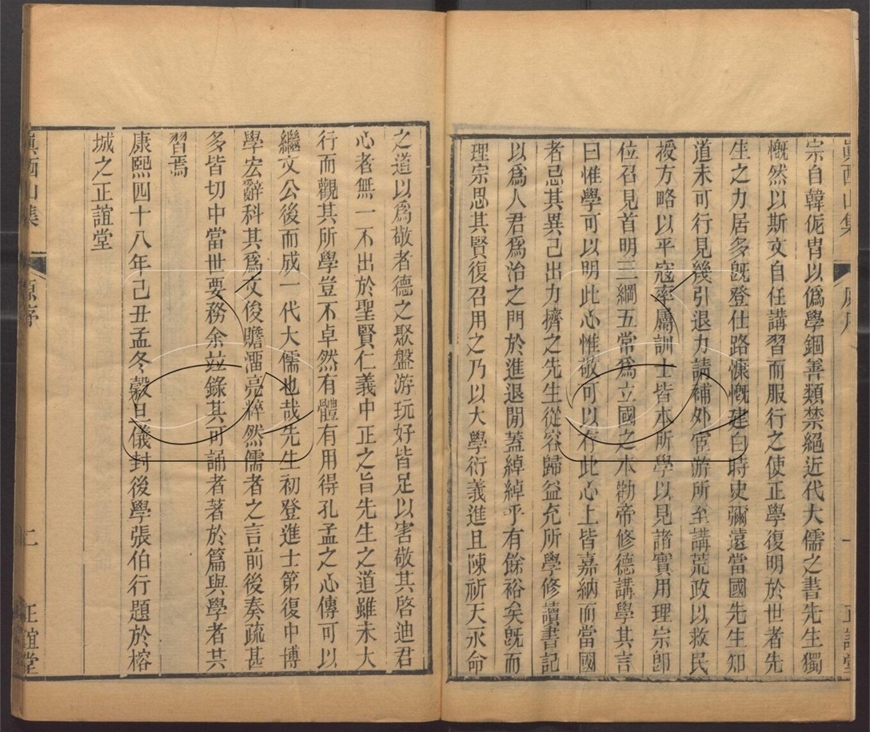 宗自韓侂胄以僞學錮善類禁絕近代大儒之書先生獨
慨然以斯文自任講習而服行之使正學復明於世者先
生之力居多旣登仕路慷慨建白時史彌遠當國先生知
道未可行見幾引退力請補外宦游所至講荒政以救民
授方略以平寇率屬訓士皆本所學以見諸實用理宗卽
位召見首明三綱五常爲立國之本勸帝修德講學其言
曰惟學可以明此心惟敬可以存此心上皆嘉納而當國
者忌其異己出力擠之先生從容歸益充所學修讀書記
以爲人君爲治之門於進退閒蓋綽綽乎有餘裕矣旣而
理宗思其賢復召用之乃以大學衍義進且陳祈天永命
眞西山集
原序
一
正誼堂
之道以爲敬者德之聚盤游玩好皆足以害敬其啓迪君
心者無一不出於聖賢仁義中正之旨先生之道雖未大
行而觀其所學豈不卓然有體有用得孔孟之心傳可以
繼文公後而成一代大儒也哉先生初登進士第復中博
學宏辭科其爲文俊贍濡亮粹然儒者之言前後奏疏甚
多皆切中當世要務余竝錄其可誦者著於篇與學者共
習焉
康熙四十八年己丑孟冬穀旦儀封後學張伯行題於榕
城之正誼堂
眞西山集
原序
二
正誼堂